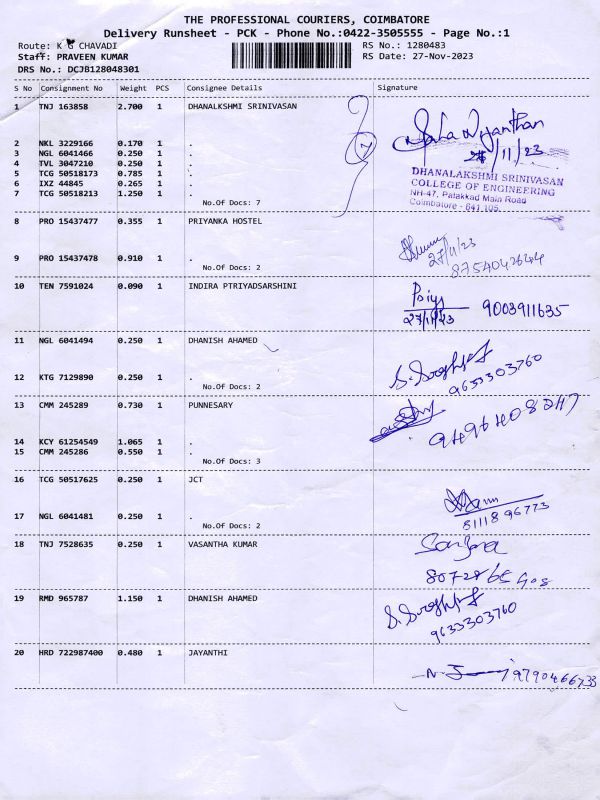 THE PROFESSIONAL COURIERS, COIMBATORE
Delivery Runsheet - PCK - Phone No.:0422-3505555 - Page No.:1
Route: K G CHAVADI RS No.: 1280483
Staff: PRAVEEN KUMAR RS Date: 27-Nov-2023
DRS No.: DCJB128048301
S No Consignment No Weight PCS Consignee Details Signature
1 TNJ 163858 2.700 1 DHANALKSHMI SRINIVASAN
2 NKL 3229166 0.170 1 .
3 NGL 6041466 0.250 1 .
4 TVL 3047210 0.250 1 .
5 TCG 50518173 0.785 1 .
6 IXZ 44845 0.265 1 .
7 TCG 50518213 1.250 1 .
No.Of Docs: 7
7
/11/23
DHANALAKSHMI SRINIVASAN
COLLEGE OF ENGINEERING
NH-47, Palakkad Main Road
Coimbatore - 641 105.
8 PRO 15437477 0.355 1 PRIYANKA HOSTEL
27/11/23
9 PRO 15437478 0.910 1 .
8754042644
No.Of Docs: 2
10 TEN 7591024 0.090 1 INDIRA PTRIYADSARSHINI
Priya 9003911635
27/11/23
11 NGL 6041494 0.250 1 DHANISH AHAMED
12 KTG 7129890 0.250 1 .
9633303760
No.Of Docs: 2
13 CMM 245289 0.730 1 PUNNESARY
14 KCY 61254549 1.065 1 .
15 CMM 245286 0.550 1 .
No.Of Docs: 3
16 TCG 50517625 0.250 1 JCT
17 NGL 6041481 0.250 1 .
8111896773
No.Of Docs: 2
18 TNJ 7528635 0.250 1 VASANTHA KUMAR
19 RMD 965787 1.150 1 DHANISH AHAMED
9633303760
20 HRD 722987400 0.480 1 JAYANTHI
9790466733